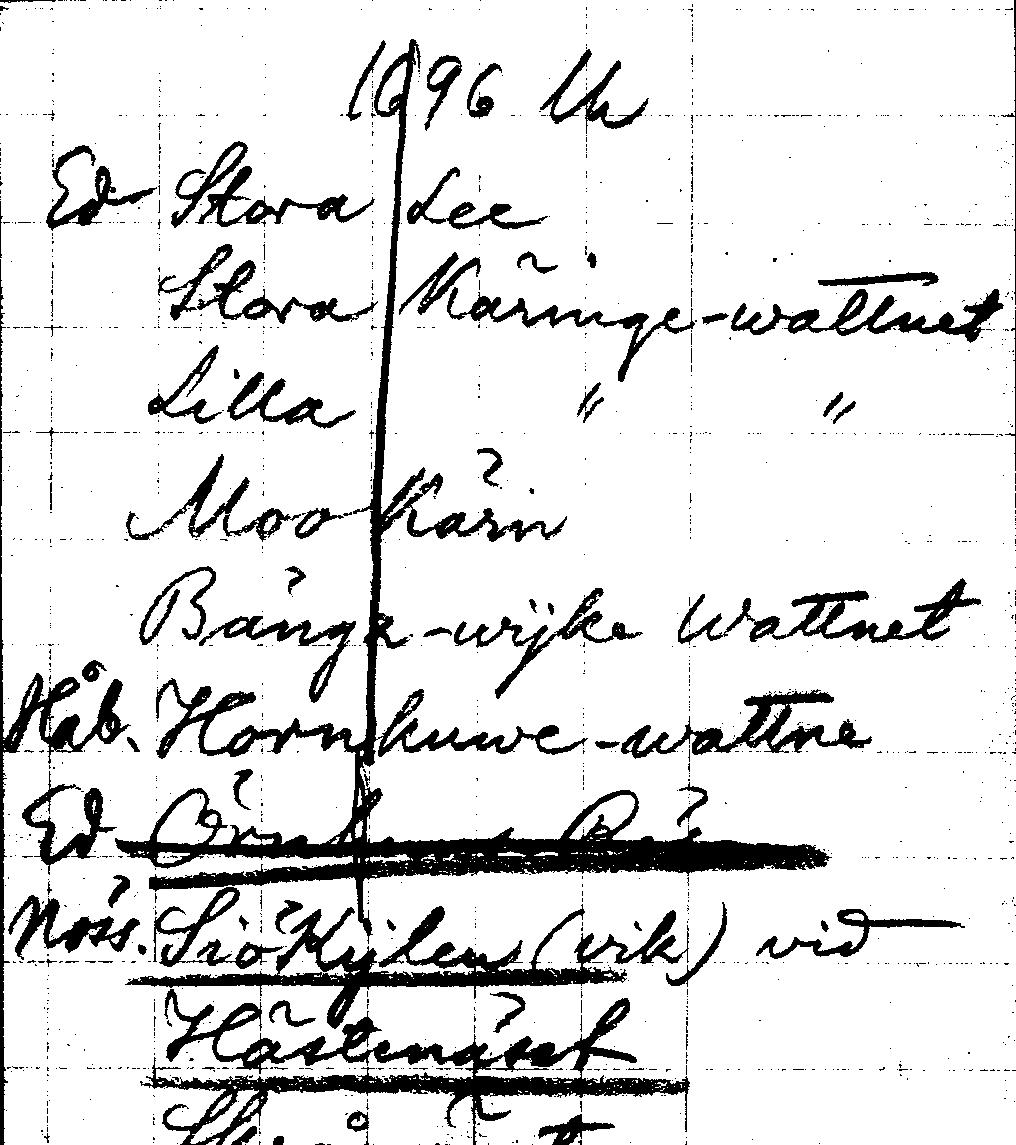 1696 Uk
Ed Stora Lee
Stora Käringe-wattnet
Lilla " "
Moo Kärn
Bånga-wijke Wattnet
Håb. Hornkuwe-wattne
Ed
Nöss. Siö Kijlen (vik) vid
Hästenäset